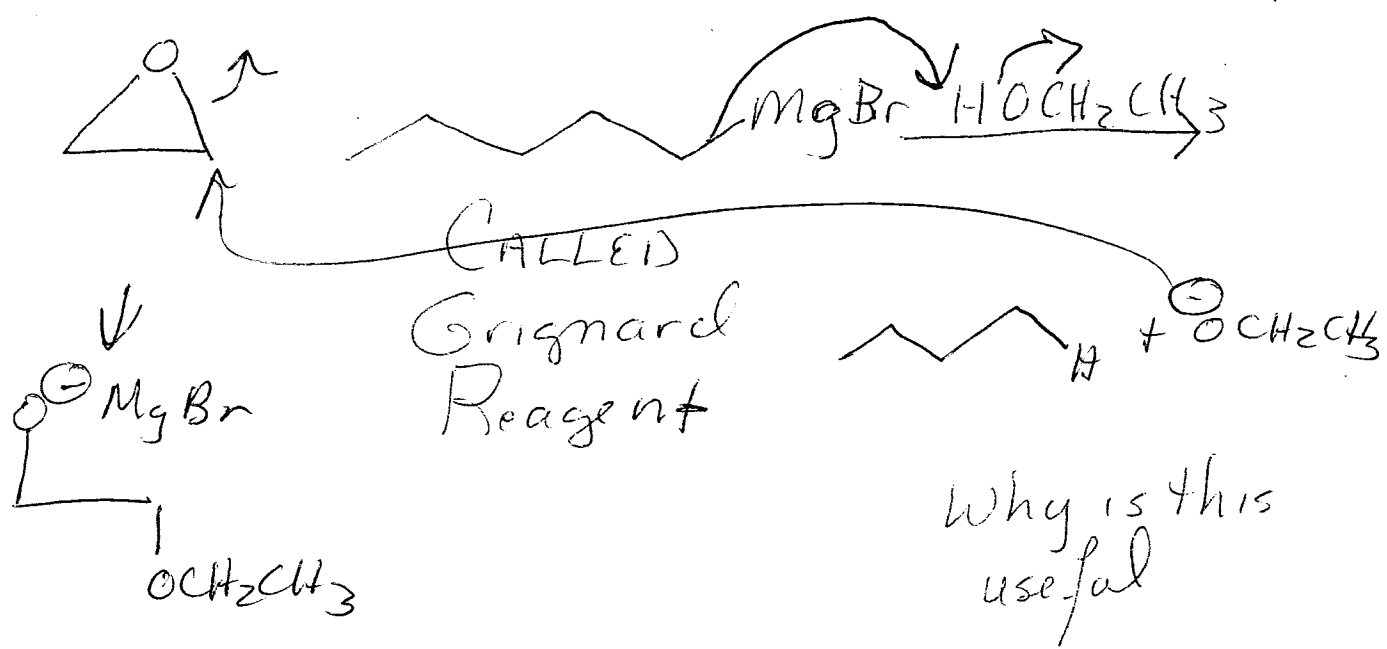 O
MgBr HOCH2CH3
CALLED
Grignard
Reagent
H + ⊖OCH2CH3
O⊖ MgBr
OCH2CH3
Why is this
useful